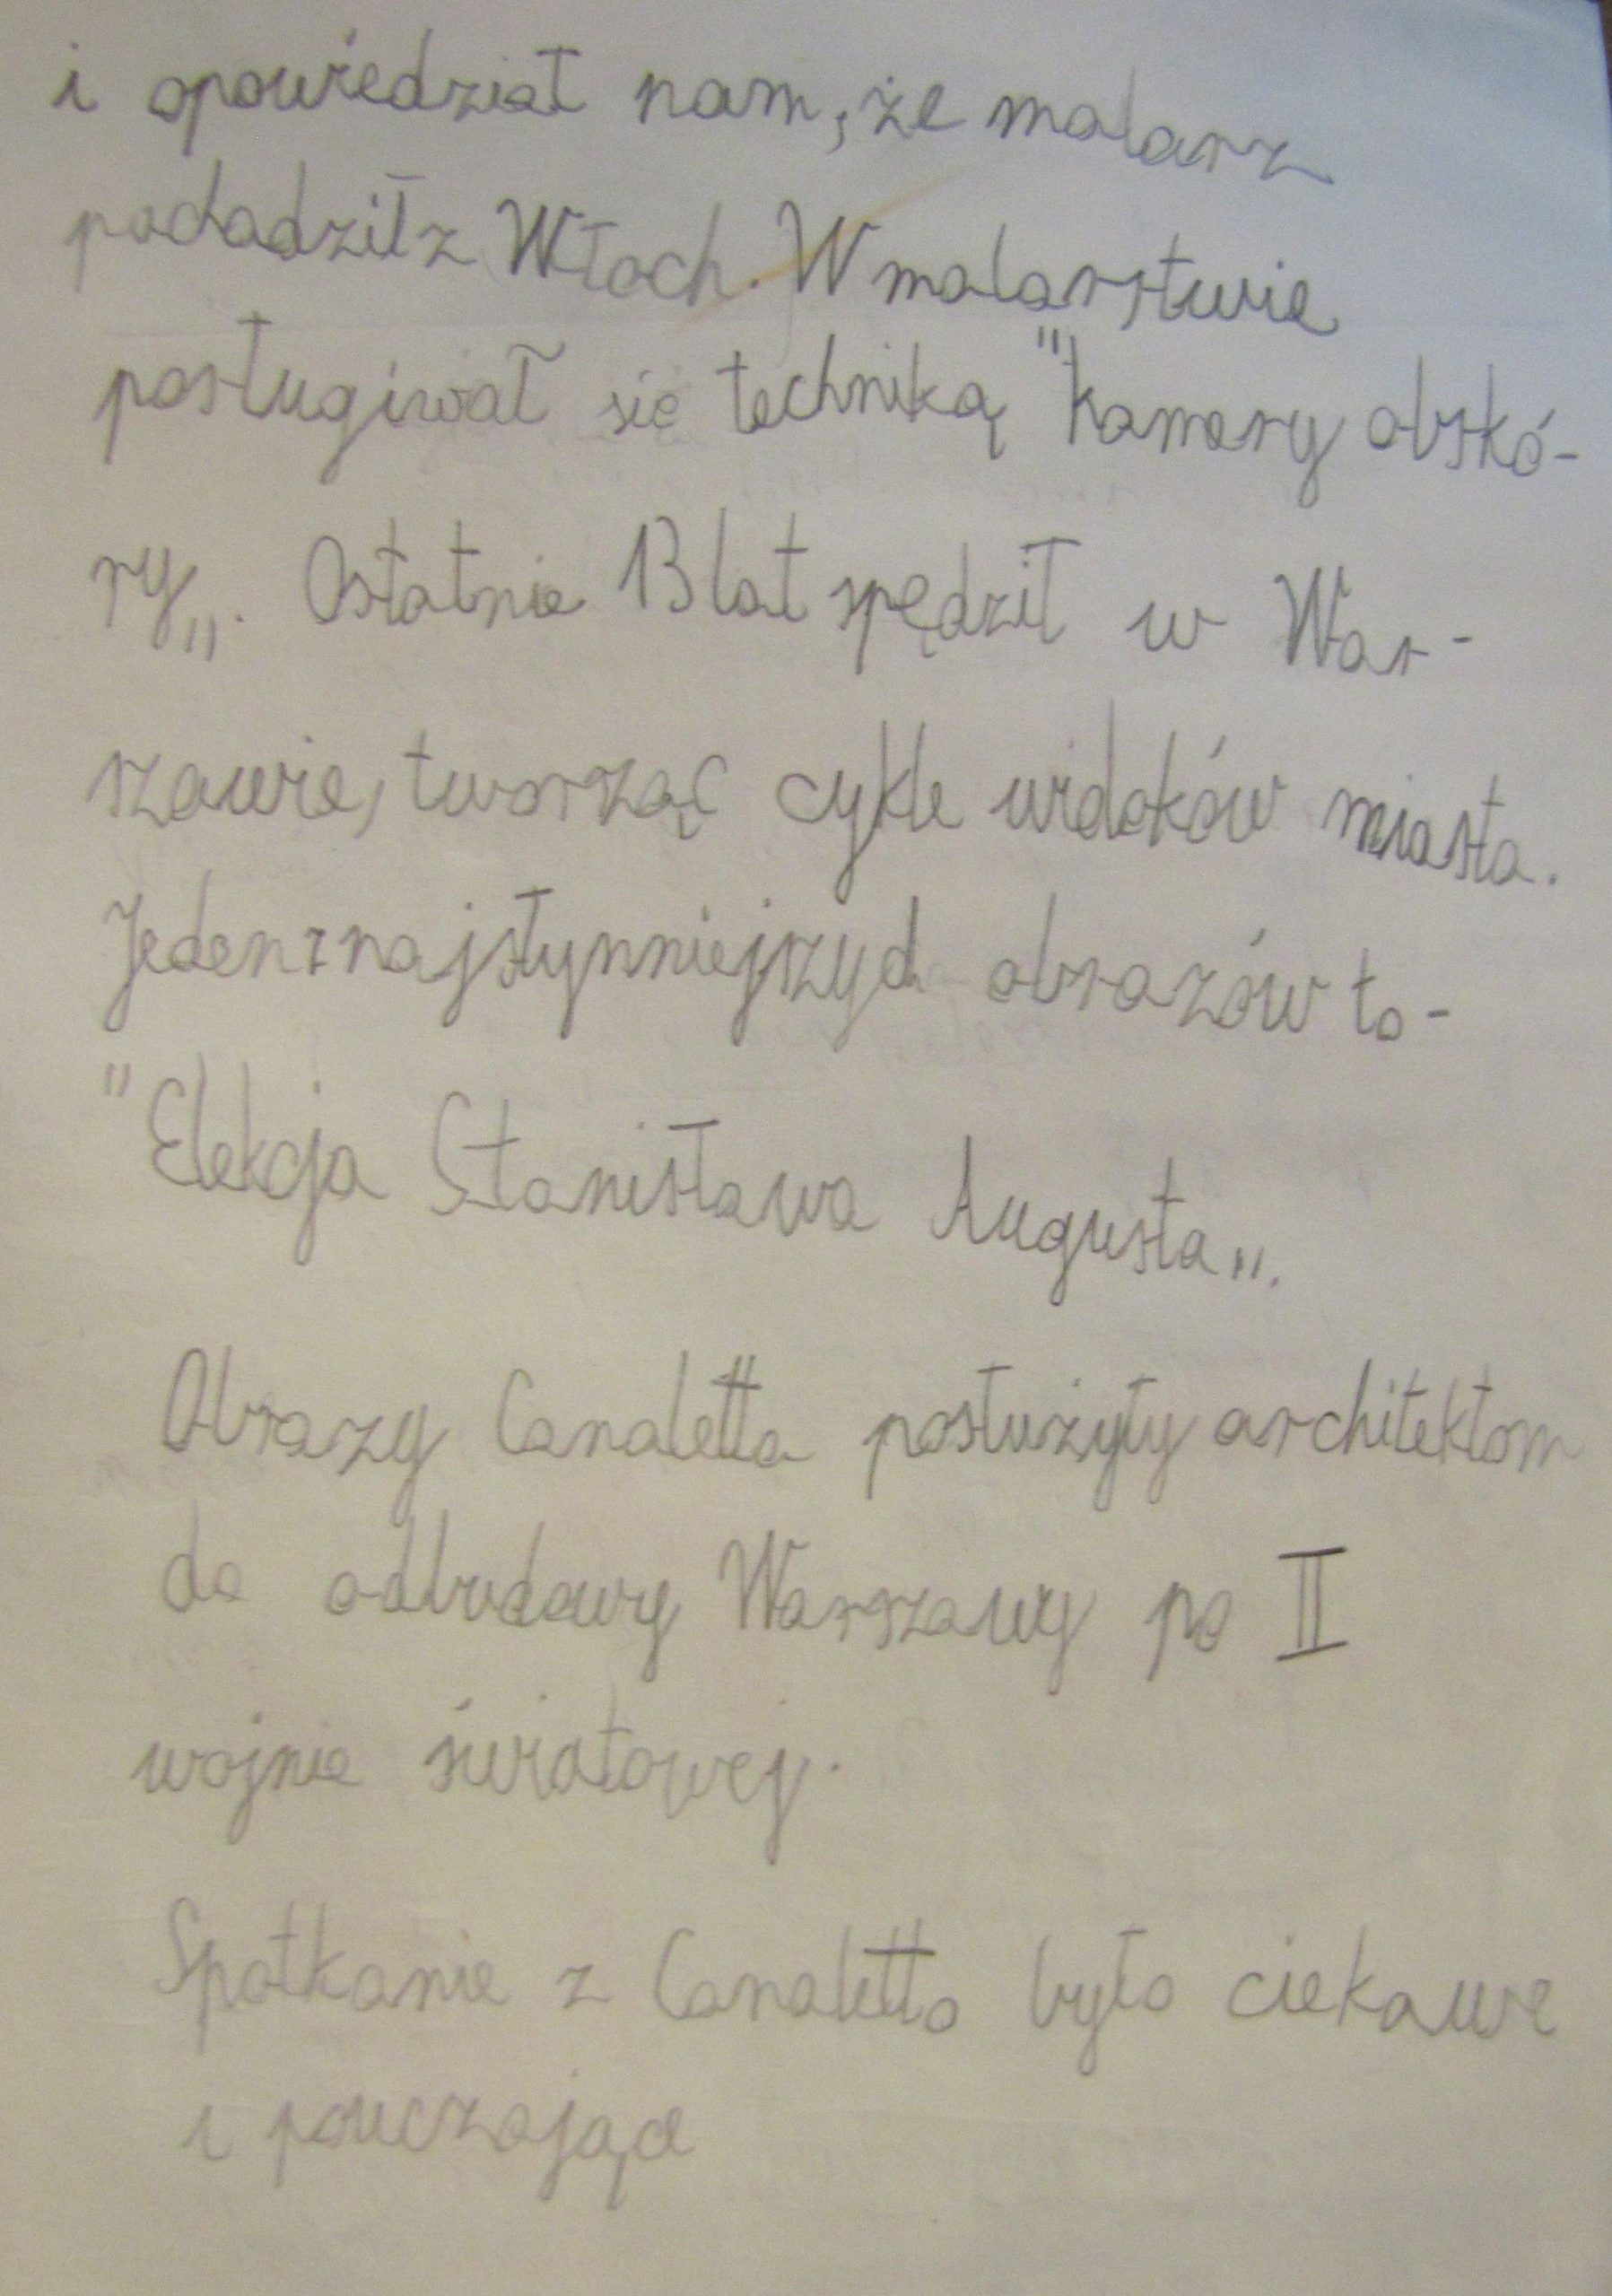 i opowiedział nam, że malarz
pochodził z Włoch. W malarstwie
posługiwał się techniką "kamery obskó-
ry„. Ostatnie 13 lat spędził w War-
szawie, tworząc cykle widoków miasta.
Jeden z najsłynniejszych obrazów to-
"Elekcja Stanisława Augusta„.
Obrazy Canaletta posłużyły architektom
do odbudowy Warszawy po II
wojnie światowej.
Spotkanie z Canaletto było ciekawe
i pouczające